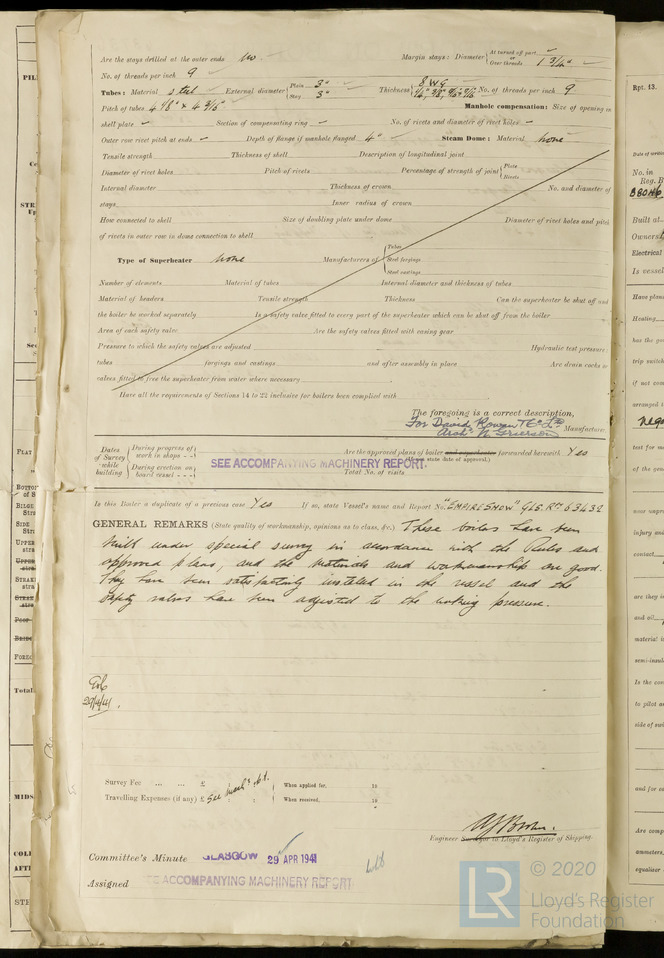 Are the stays drilled at the outer ends no Margin stays: Diameter { At turned off part ✓ Over threads 1 3/4" ✓
No. of threads per inch 9
Tubes: Material steel External diameter { Plain 3" Stay 3" Thickness { 8 WG No. of threads per inch 9
Pitch of tubes Manhole compensation: Size of opening in
shell plate ✓ Section of compensating ring ✓ No. of rivets and diameter of rivet holes ✓
Outer row rivet pitch at ends ✓ Depth of flange if manhole flanged 4" ✓ Steam Dome: Material None
Tensile strength Thickness of shell Description of longitudinal joint
Diameter of rivet holes Pitch of rivets Percentage of strength of joint { Plate Rivets
Internal diameter Thickness of crown No. and diameter of
stays Inner radius of crown
How connected to shell Size of doubling plate under dome Diameter of rivet holes and pitch
of rivets in outer row in dome connection to shell
Type of Superheater None Manufacturers of { Tubes Steel forgings Steel castings
Number of elements Material of tubes Internal diameter and thickness of tubes
Material of headers Tensile strength Thickness Can the superheater be shut off and
the boiler be worked separately Is a safety valve fitted to every part of the superheater which can be shut off from the boiler
Area of each safety valve Are the safety valves fitted with easing gear
Pressure to which the safety valves are adjusted Hydraulic test pressure:
tubes forgings and castings and after assembly in place Are drain cocks or
valves fitted to free the superheater from water where necessary
Have all the requirements of Sections 14 to 22 inclusive for boilers been complied with
The foregoing is a correct description,
For David Rowan & Co Ld
Archd W Grierson Manufacturer.
Dates of Survey while building { During progress of work in shops - - During erection on board vessel - - -
SEE ACCOMPANYING MACHINERY REPORT.
Are the approved plans of boiler and superheater forwarded herewith Yes
(If not state date of approval.)
Total No. of visits
Is this Boiler a duplicate of a previous case Yes If so, state Vessel's name and Report No. "EMPIRE SNOW" GLS. Rpt 63432
GENERAL REMARKS (State quality of workmanship, opinions as to class, &c.) These boilers have been
built under special survey in accordance with the Rules and
approved plans, and the materials and workmanship are good.
They have been satisfactorily installed in the vessel and the
safety valves have been adjusted to the working pressure.
29/4/41.
Survey Fee ... ... £ See Mach. Rpt. When applied for, 19
Travelling Expenses (if any) £ When received, 19
Engineer Surveyor to Lloyd's Register of Shipping.
Committee's Minute GLASGOW 29 APR 1941
Assigned SEE ACCOMPANYING MACHINERY REPORT
© 2020
LR
Lloyd's Register
Foundation
Rpt. 13.
No. in
Reg. B
Built at
Owners
Electrical
Is vessel